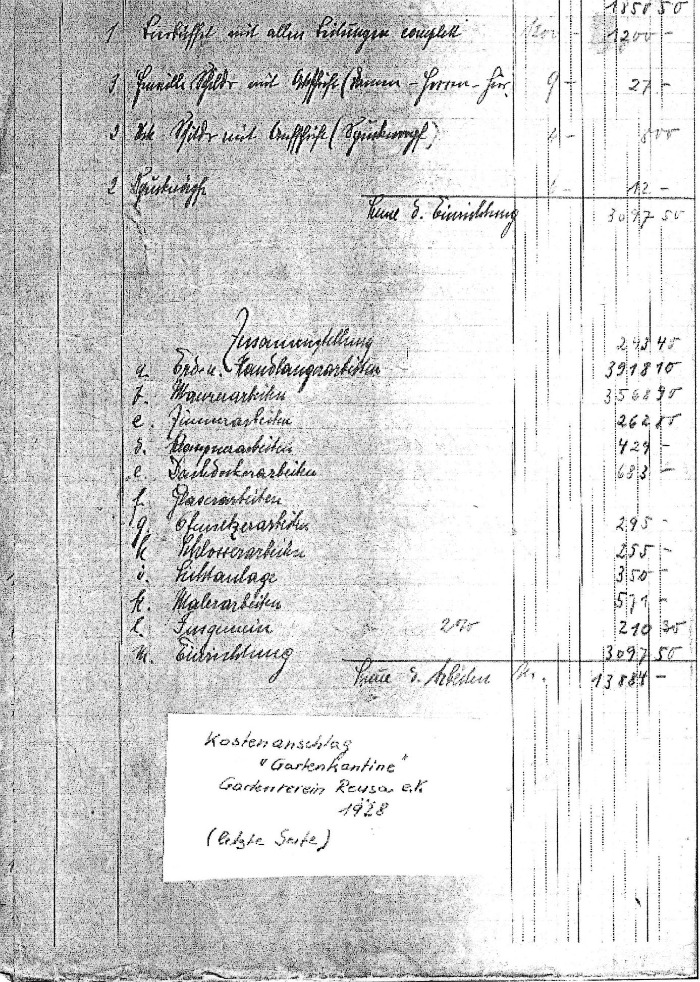 1850 50
1 Bierbüffet mit allen Leitungen complett 1200 - 1200 -
3 Emaille Schilder mit Aufschrift (Damen - Herren - Hier. 9 - 27 -
2 Schilder mit Aufschrift (Spucknapf) 4 - 8 00
2 Spucknäpfe 12 -
Sume d. Einrichtung 3097 50
Zusammenstellung
243 45
a. Erd- u. Handlangerarbeiten 3918 10
b. Maurerarbeiten
c. Zimmerarbeiten 262
d. Klempnerarbeiten 429 -
e. Dachdeckerarbeiten 683 -
f. Glaserarbeiten
g. Ofensetzerarbeiten 295 -
h. Schlosserarbeiten 255 -
i. Lichtanlage 350 -
k. Malerarbeiten 571 -
l. Insgemein 210 30
m. Einrichtung 3097 50
Sume d. Arbeiten M. 13884 -
Kostenanschlag
"Gartenkantine"
Gartenverein Reusa e.V.
1928
(letzte Seite)